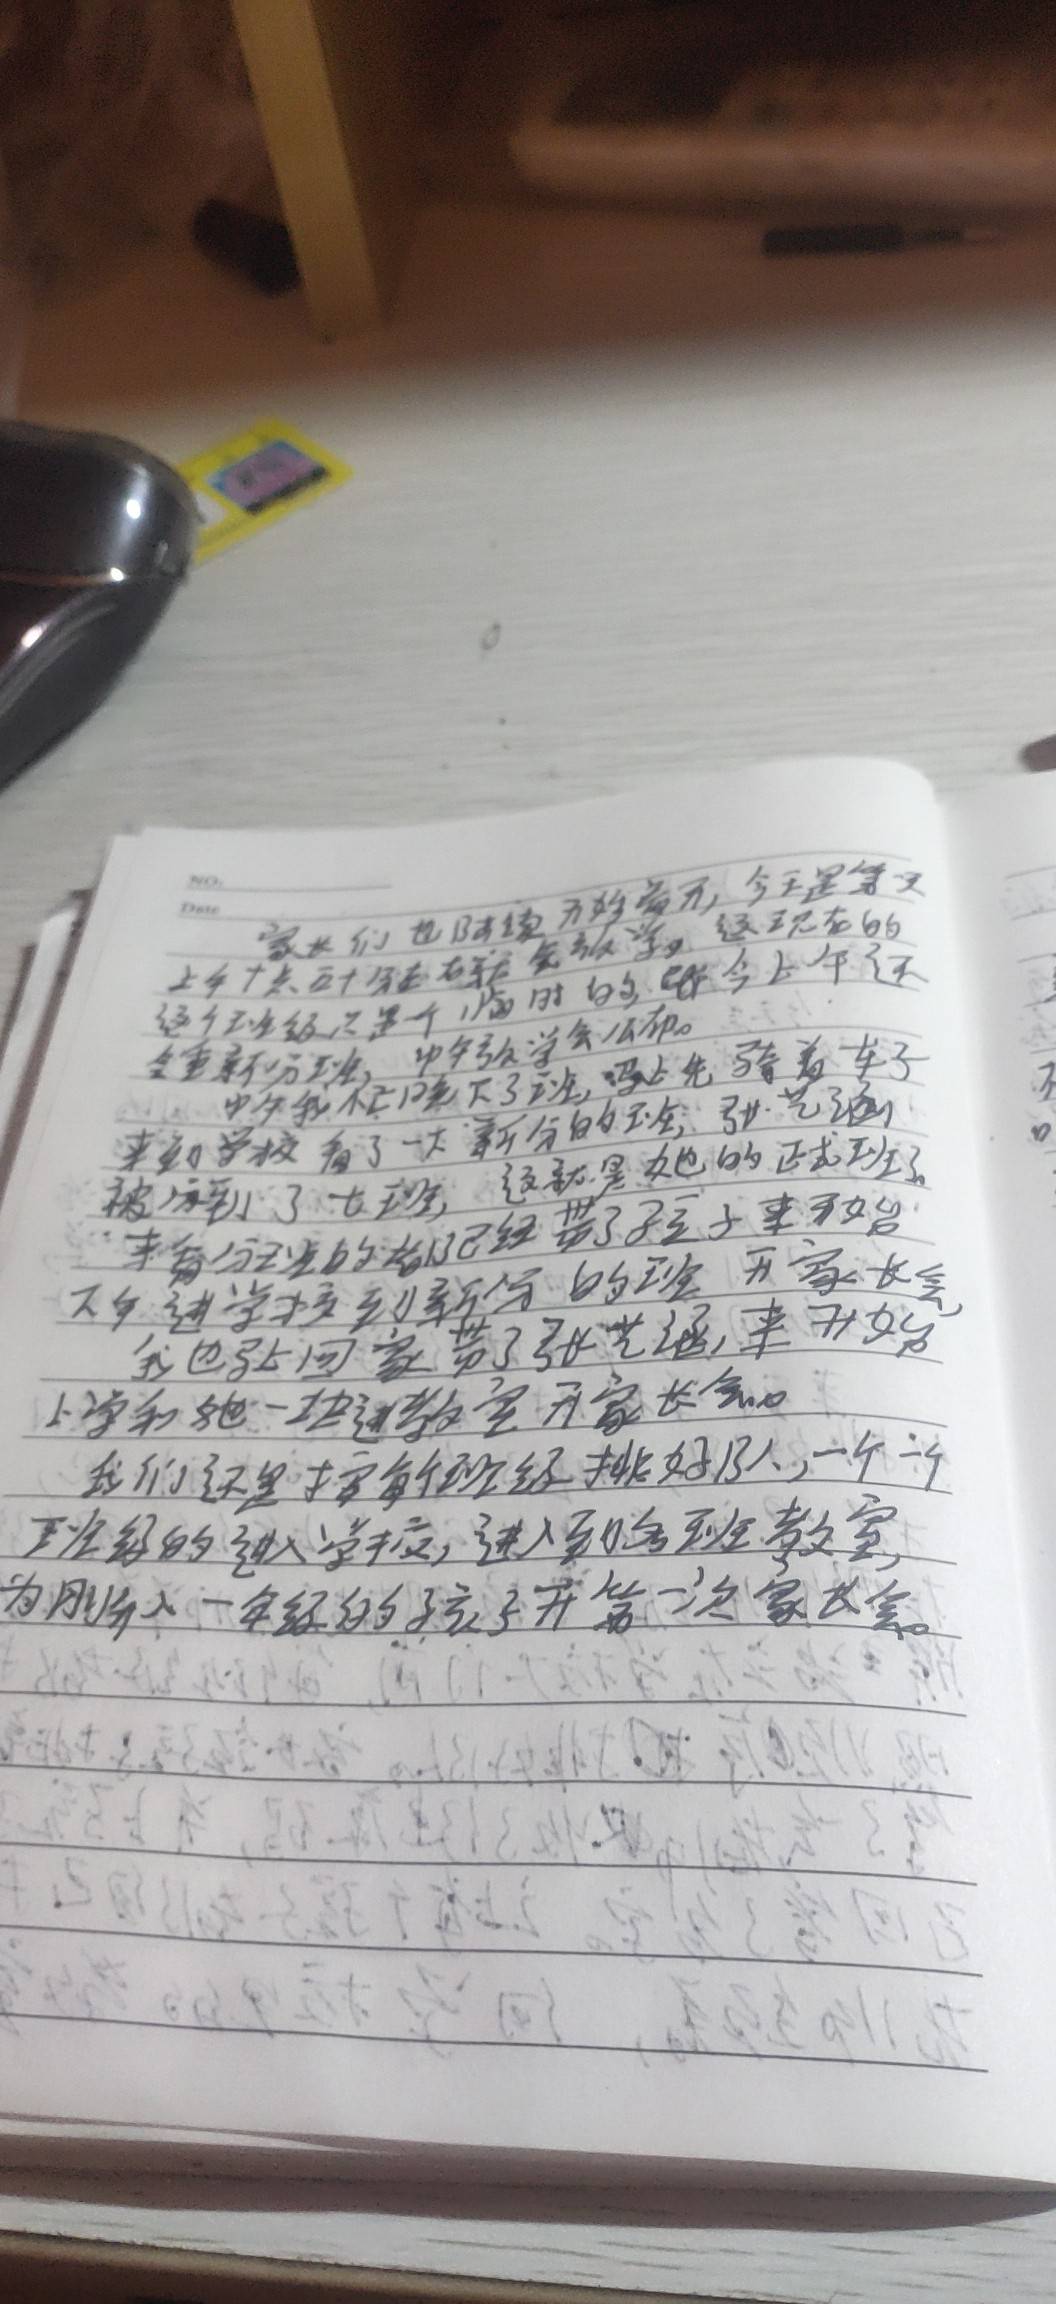 NO.
Date
家长们也陆续开始离开,今天是第一天
上午十点五十分左右就会放学。这现在的
这个班级只是个临时的,今上午还
会重新分班,中午放学会公布。
中午我下了班,马上先骑着车子
来到学校看了一下新分的班,张艺涵
被分到了七班,这就是她的正式班了。
来看分班的都已经带了孩子来开始
下午进学校到新分的班开家长会,
我也马上回家带了张艺涵,来开始
上学和她一块进教室开家长会。
我们还是按每个班级排好队,一个一个
班级的进入学校,进入到各班教室,
为刚分入一年级的孩子开第一次家长会。